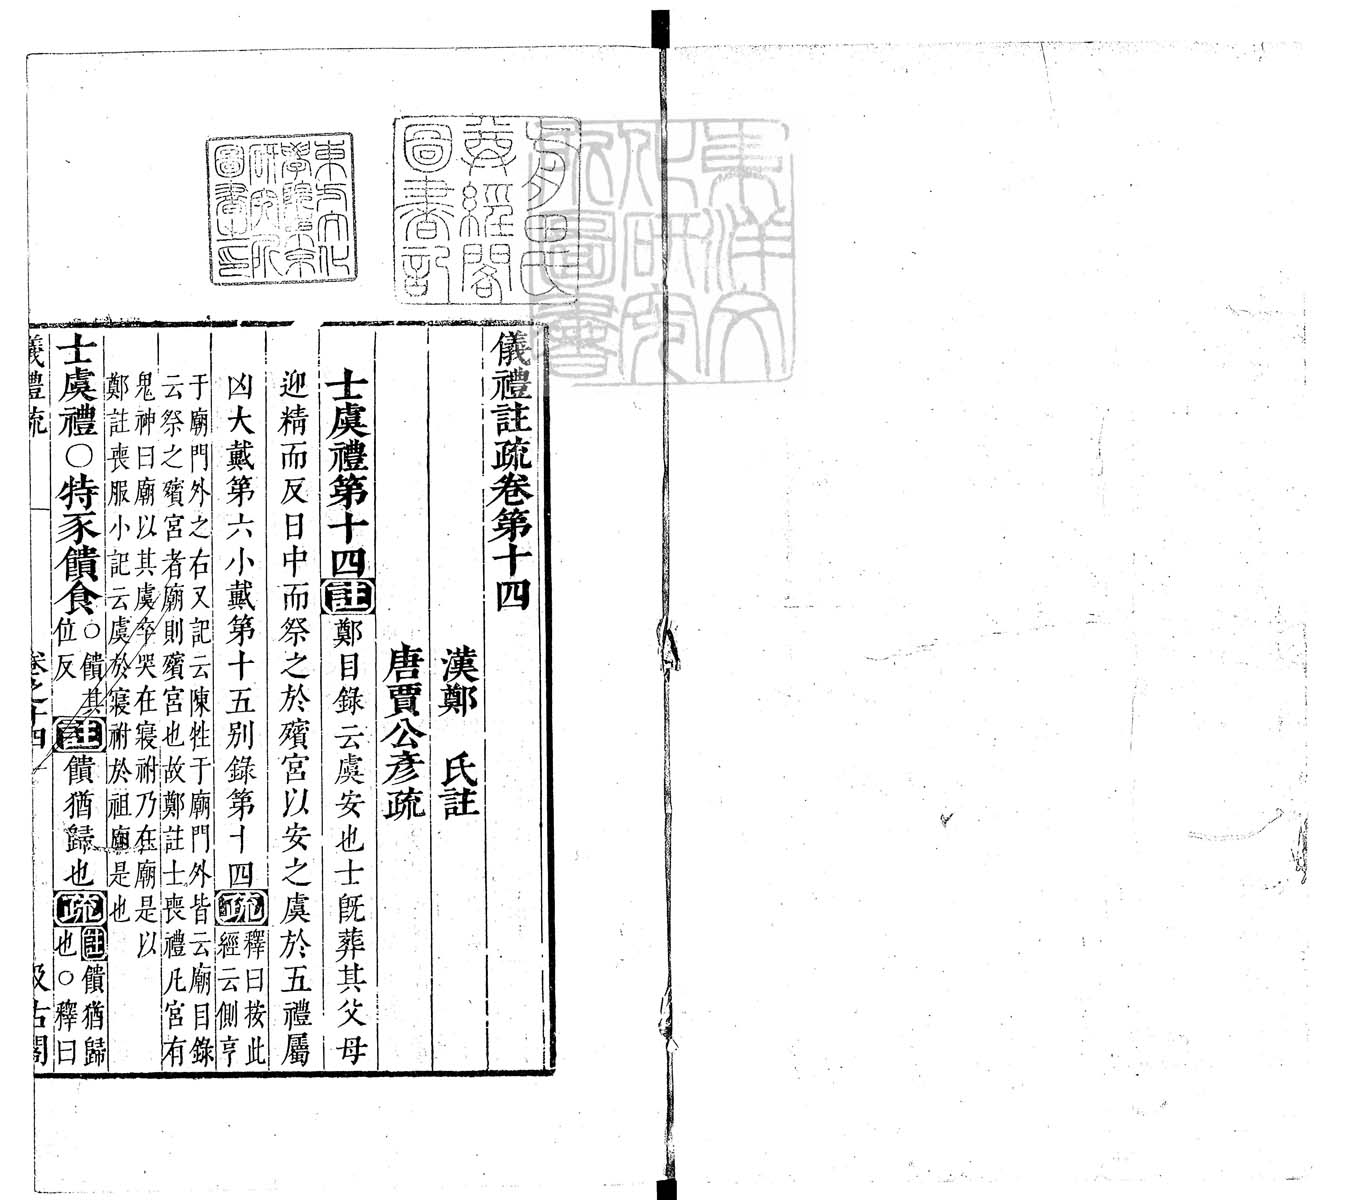 儀禮註疏卷第十四
漢鄭　氏註
唐賈公彥疏
士虞禮第十四註鄭目錄云虞安也士旣葬其父母
迎精而反日中而祭之於殯宮以安之虞於五禮屬
凶大戴第六小戴第十五別錄第十四疏釋曰按此
經云側亨
于廟門外之右又記云陳牲于廟門外皆云廟目錄
云祭之殯宮者廟則殯宮也故鄭註士喪禮凡宮有
鬼神曰廟以其虞卒哭在寢祔乃在廟是以
鄭註喪服小記云虞於寢祔於祖廟是也
士虞禮○特豕饋食○饋其
位反
註饋猶歸也疏註饋猶歸
也○釋曰
儀禮疏
卷之十四
汲古閣
東洋文
化研究
所圖書
有用氏
尊經閣
圖書記
東方文化
學院東京
研究所
圖書印